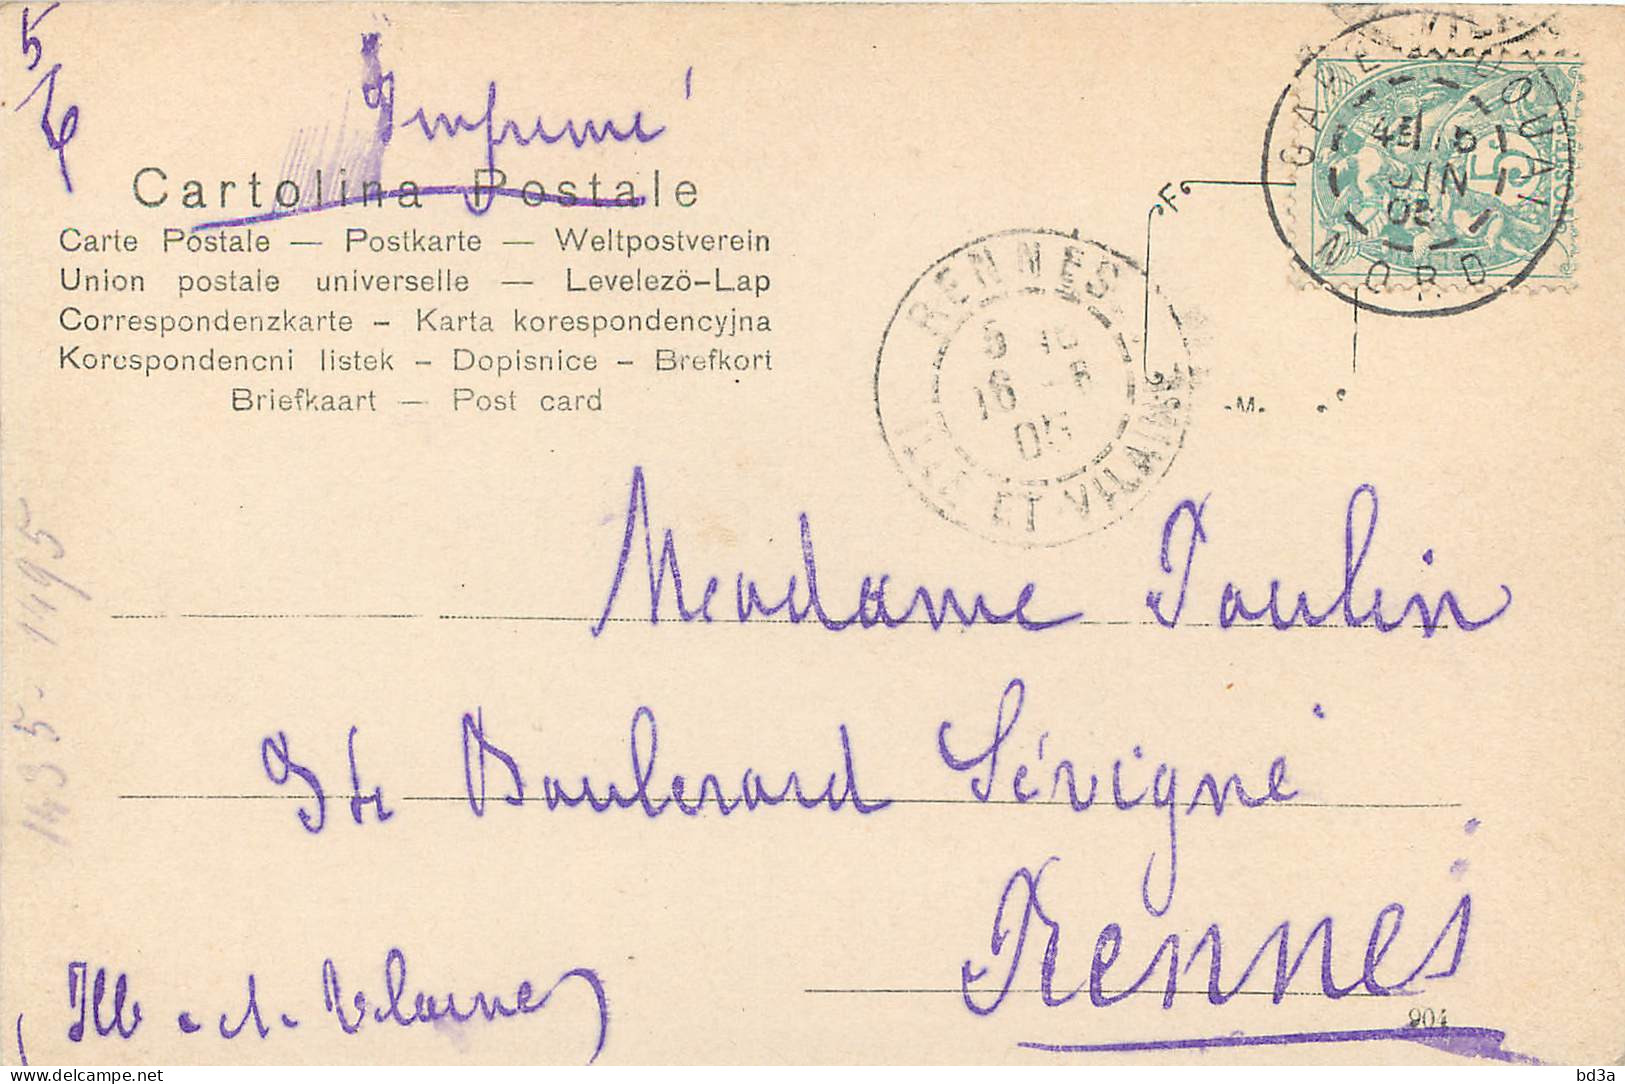 5
Imprimé
Cartolina Postale
Carte Postale — Postkarte — Weltpostverein
Union postale universelle — Levelezö-Lap
Correspondenzkarte – Karta korespondencyjna
Korespondencni listek – Dopisnice – Brefkort
Briefkaart — Post card
GARE DOUAI
JIN
05
NORD
5
F
M
RENNES
16 - 6
05
ILLE ET VILAINE
Madame Poulin
Boulevard Sévigné
Rennes
(Ille-et-Vilaine)
904
1435-1495
delcampe.net
bd3a